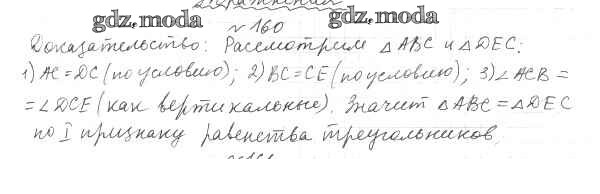 gdz.moda gdz.moda
№160
Доказательство: Рассмотрим △ABC и △DEC:
1) AC = DC (по условию); 2) BC = CE (по условию); 3) ∠ACB =
= ∠DCE (как вертикальные). Значит △ABC = △DEC
по I признаку равенства треугольников.